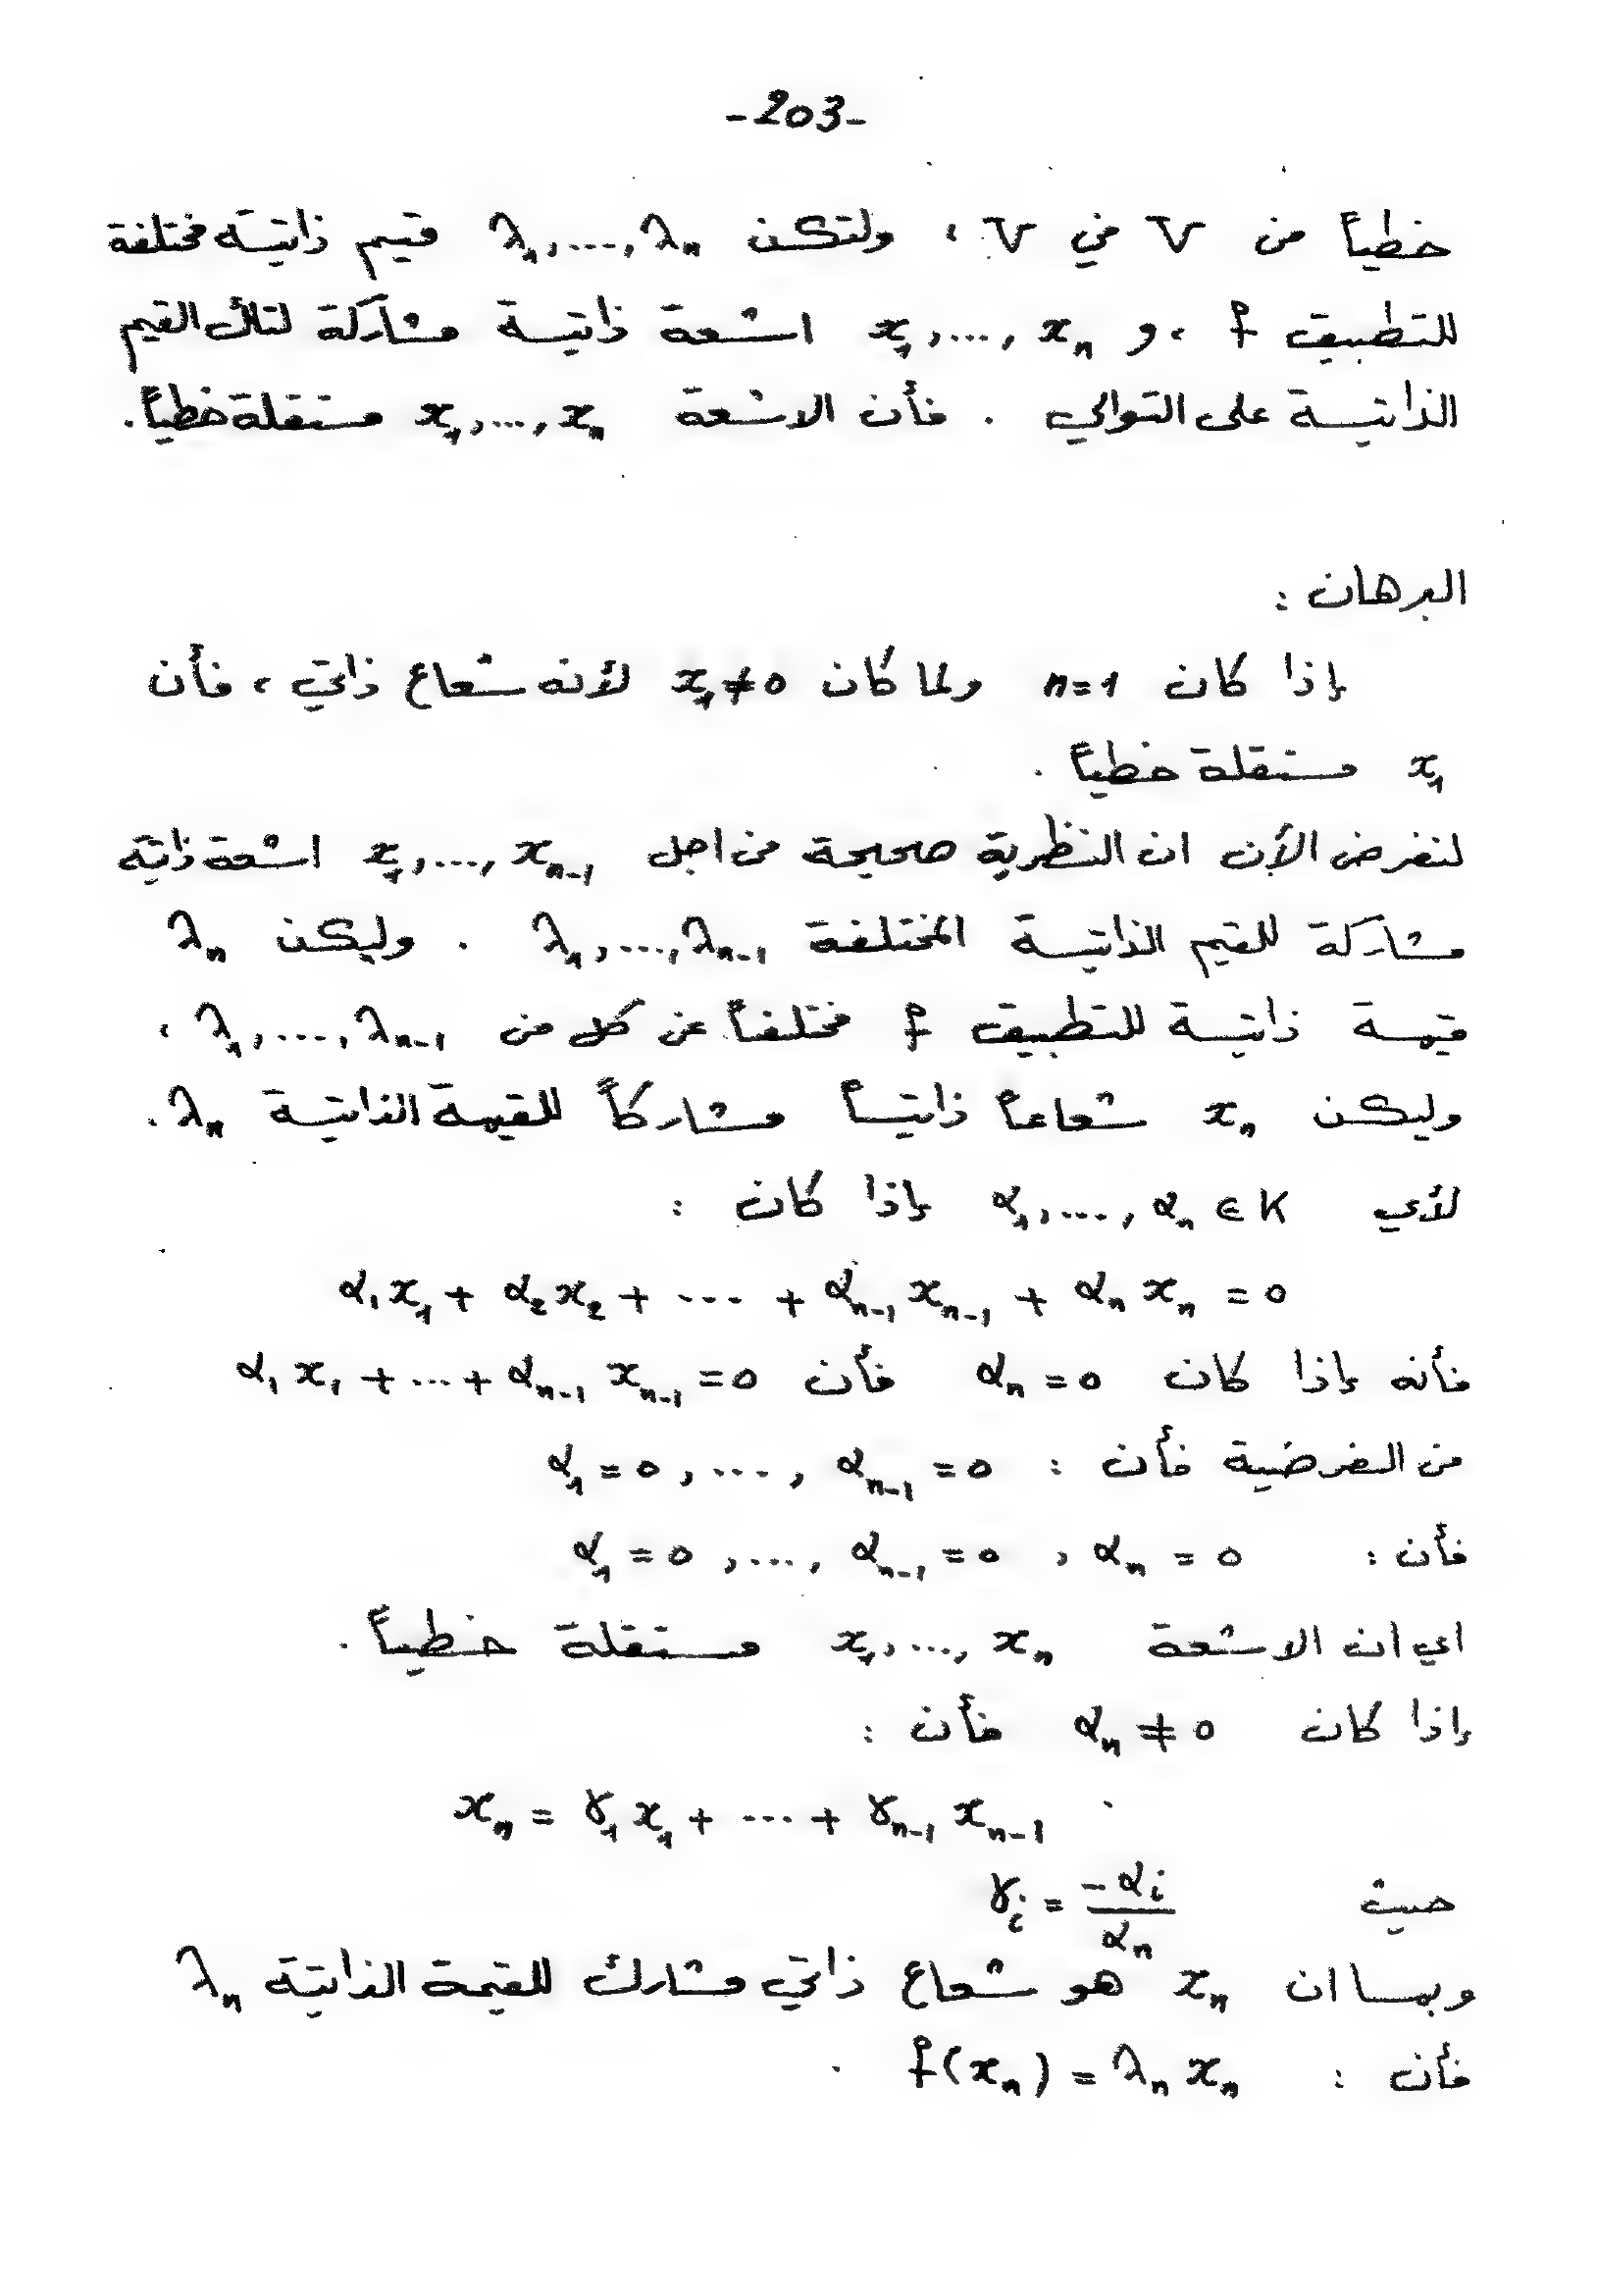 -203-
خطياً من V في V ، ولتكن λ₁,...,λₙ قيم ذاتية مختلفة
للتطبيق f ، و x₁,...,xₙ اشعة ذاتية مشاركة لتلك القيم
الذاتية على التوالي . فأن الاشعة x₁,...,xₙ مستقلة خطياً.
البرهان :
إذا كان n=1 ولما كان x₁≠0 لأنه شعاع ذاتي ، فأن
x₁ مستقلة خطياً .
لنفرض الأن ان النظرية صحيحة من اجل x₁,...,xₙ₋₁ اشعة ذاتية
مشاركة للقيم الذاتية المختلفة λ₁,...,λₙ₋₁ . وليكن λₙ
قيمة ذاتية للتطبيق f مختلفاً عن كل من λ₁,...,λₙ₋₁ ،
وليكن xₙ شعاعاً ذاتياً مشاركاً للقيمة الذاتية λₙ .
لأي α₁,...,αₙ ∈ K إذا كان :
α₁x₁ + α₂x₂ + --- + αₙ₋₁xₙ₋₁ + αₙxₙ = 0
فأنه إذا كان αₙ = 0 فأن α₁x₁ + ... + αₙ₋₁xₙ₋₁ = 0
من الفرضية فأن : α₁ = 0 , ... , αₙ₋₁ = 0
فأن : α₁ = 0 , ... , αₙ₋₁ = 0 , αₙ = 0
اي ان الاشعة x₁,...,xₙ مستقلة خطياً .
إذا كان αₙ ≠ 0 فأن :
xₙ = γ₁x₁ + --- + γₙ₋₁xₙ₋₁
حيث γᵢ = -αᵢ/αₙ
وبما ان xₙ هو شعاع ذاتي مشارك للقيمة الذاتية λₙ
فأن : f(xₙ) = λₙxₙ .